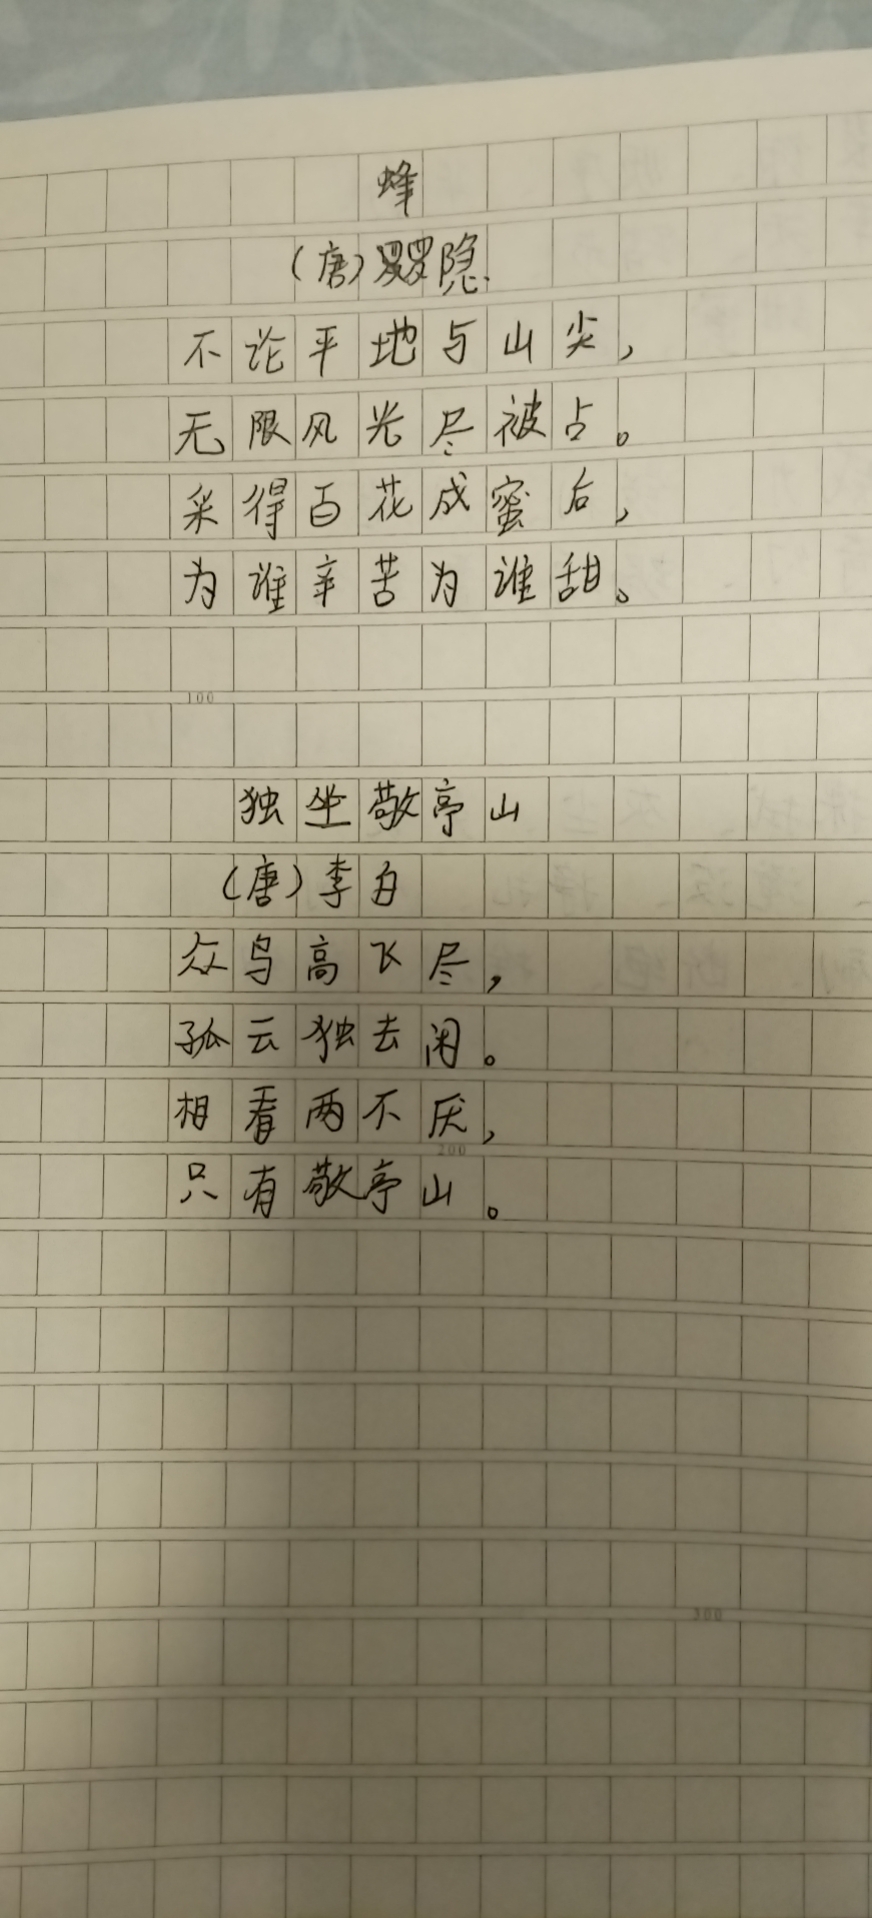 蜂
(唐)罗隐
不论平地与山尖,
无限风光尽被占。
采得百花成蜜后,
为谁辛苦为谁甜。
100
独坐敬亭山
(唐)李白
众鸟高飞尽,
孤云独去闲。
相看两不厌,
200
只有敬亭山。
300